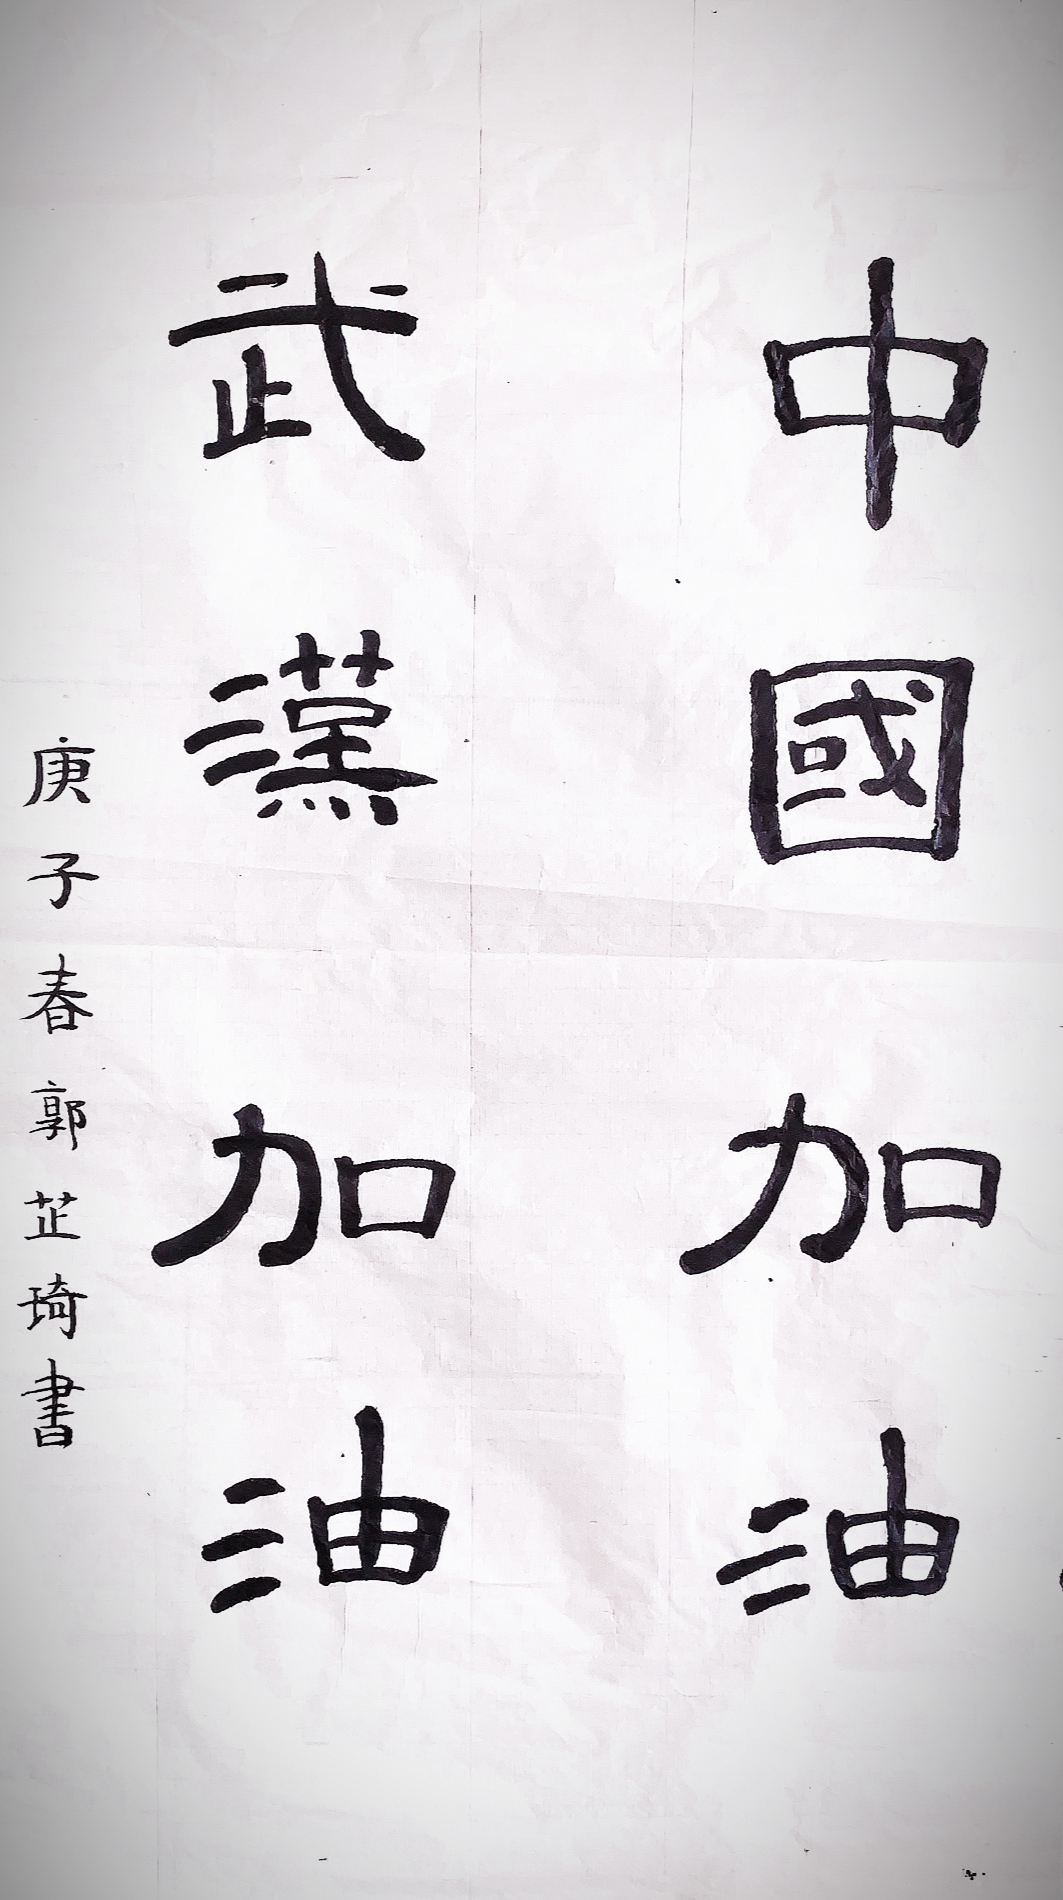 中國加油
武漢加油
庚子春郭芷琦書